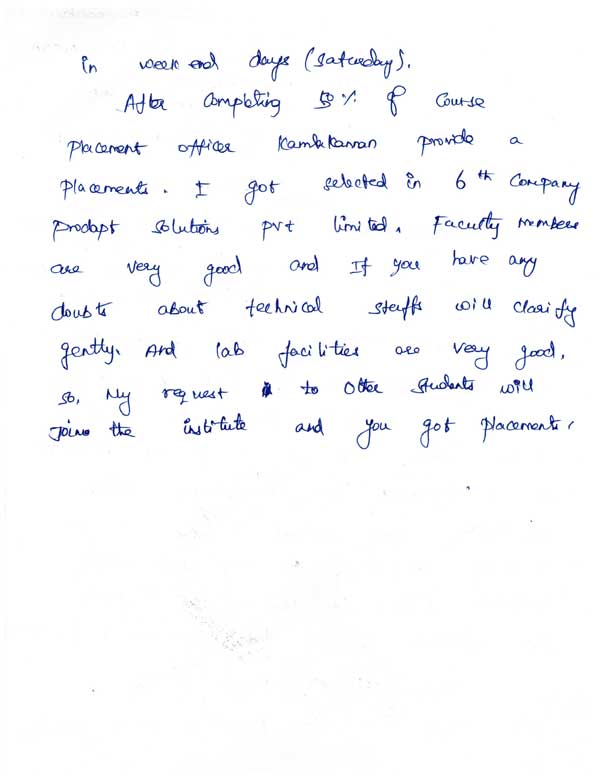 in week end days (Saturday).
After Completing 50 % of Course
Placement officer Kamlakannan provide a
Placements. I got selected in 6 th Company
Prodapt Solutions pvt limited. Faculty members
are very good and If you have any
doubts about technical staffs will clarify
gently. And lab facilities are very good.
So, My request to Other Students will
Join the institute and you got Placements.